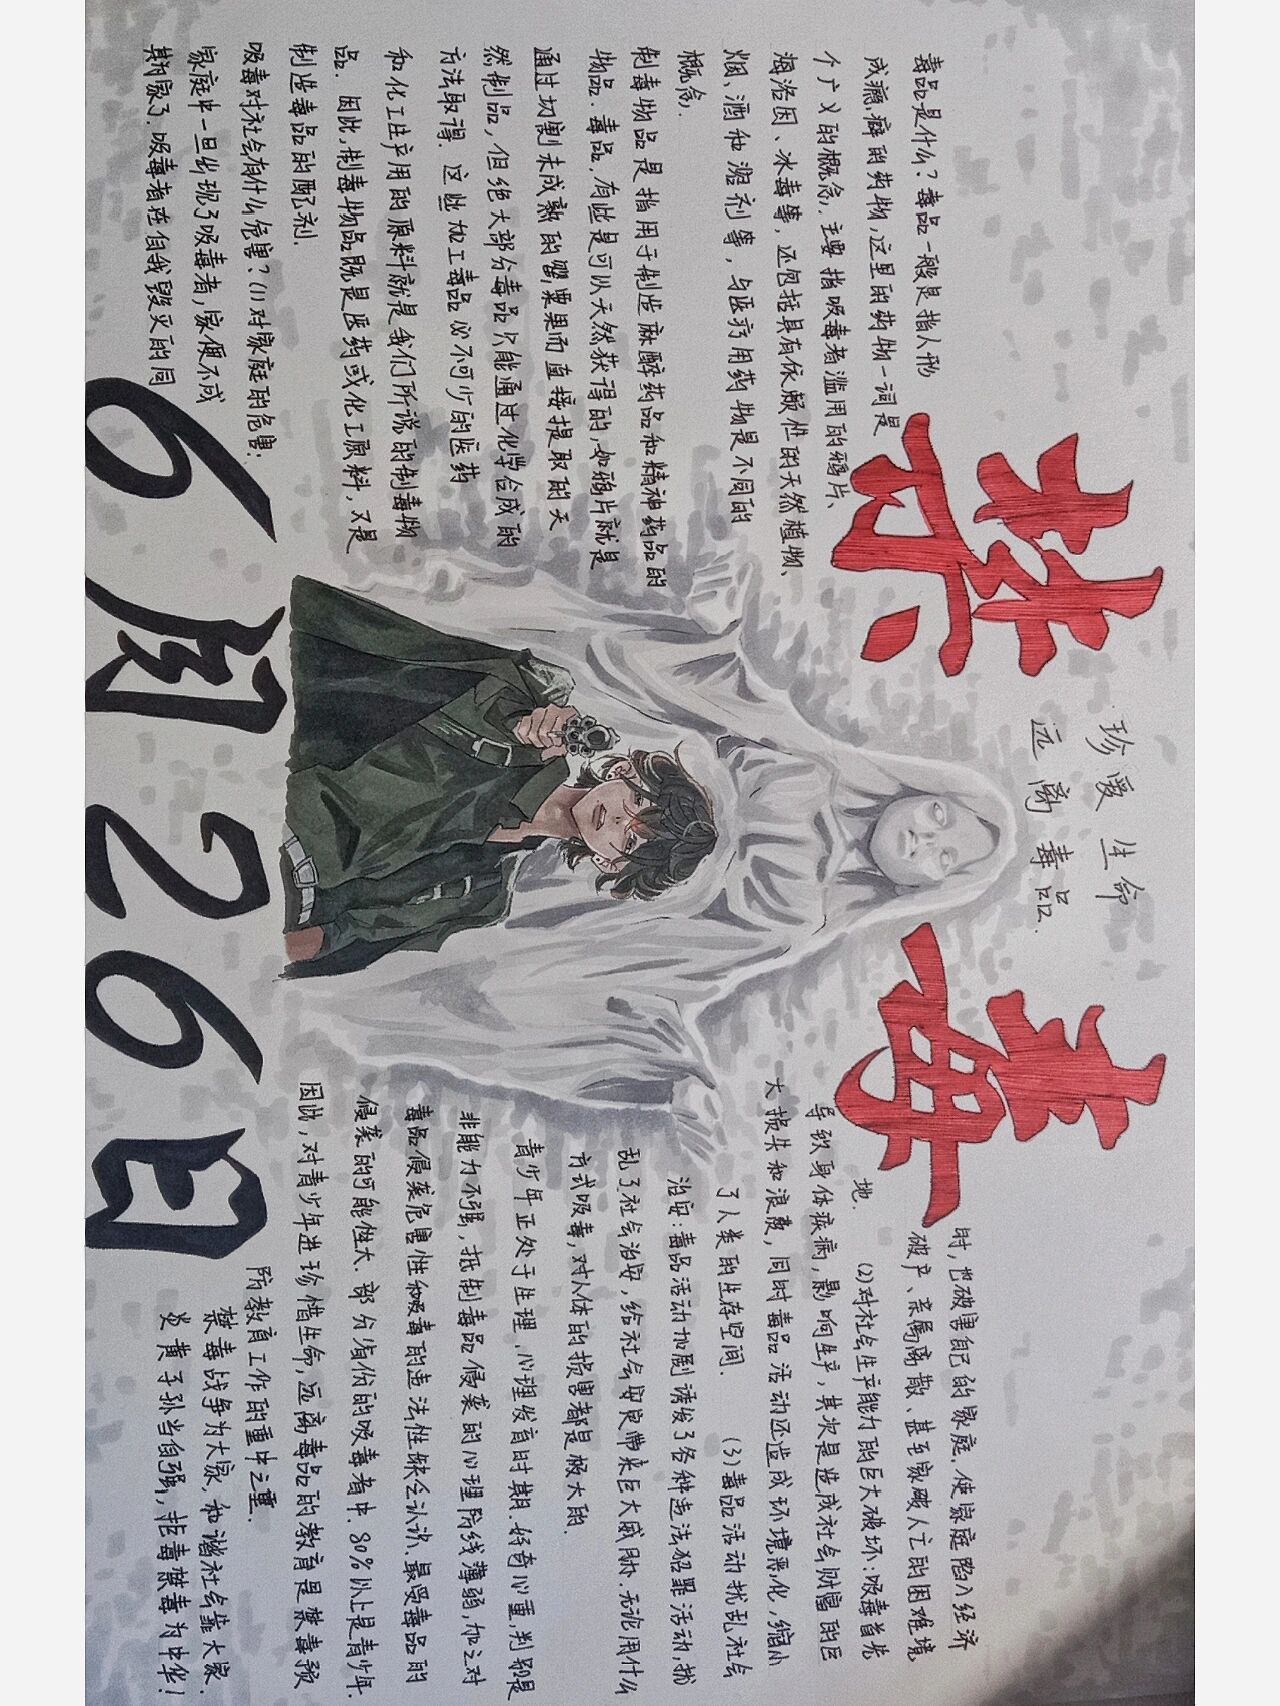 禁毒
珍爱生命
远离毒品.
毒品是什么?毒品一般是指人形
成瘾癖的药物,这里的药物一词是
个广义的概念.主要指吸毒者滥用的鸦片、
海洛因、冰毒等,还包括具有依赖性的天然植物、
烟、酒和溶剂等,与医疗用药物是不同的
概念.
制毒物品是指用于制造麻醉药品和精神药品的
物品.毒品,有些是可以天然获得的,如鸦片就是
通过切割未成熟的罂粟果而直接提取的天
然制品,但绝大部分毒品只能通过化学合成的
方法取得.这些加工毒品必不可少的医药
和化工生产用的原料就是我们所说的制毒物
品.因此,制毒物品既是医药或化工原料,又是
制造毒品的配剂.
吸毒对社会有什么危害?(1)对家庭的危害:
家庭中一旦出现了吸毒者,家便不成
其为家了.吸毒者在自我毁灭的同
时,也破害自己的家庭.使家庭陷入经济
破产、亲属离散、甚至家破人亡的困难境
地. (2)对社会生产能力的巨大破坏:吸毒首先
导致身体疾病,影响生产,其次是造成社会财富的巨
大损失和浪费,同时毒品活动还造成环境恶化,缩小
了人类的生存空间. (3)毒品活动扰乱社会
治安:毒品活动加剧诱发了各种违法犯罪活动,扰
乱了社会治安,给社会安定带来巨大威胁.无论用什么
方式吸毒,对人体的损害都是极大的.
青少年正处于生理、心理发育时期.好奇心重,判别是
非能力不强,抵制毒品侵袭的心理防线薄弱,加之对
毒品侵袭危害性和吸毒的违法性缺乏认识.最受毒品的
侵袭的可能性大.部分省份的吸毒者中.80%以上是青少年.
因此,对青少年进珍惜生命,远离毒品的教育是禁毒预
防教育工作的重中之重.
禁毒战争为大家,和谐社会靠大家.
炎黄子孙当自强,拒毒禁毒为中华!
6月26日